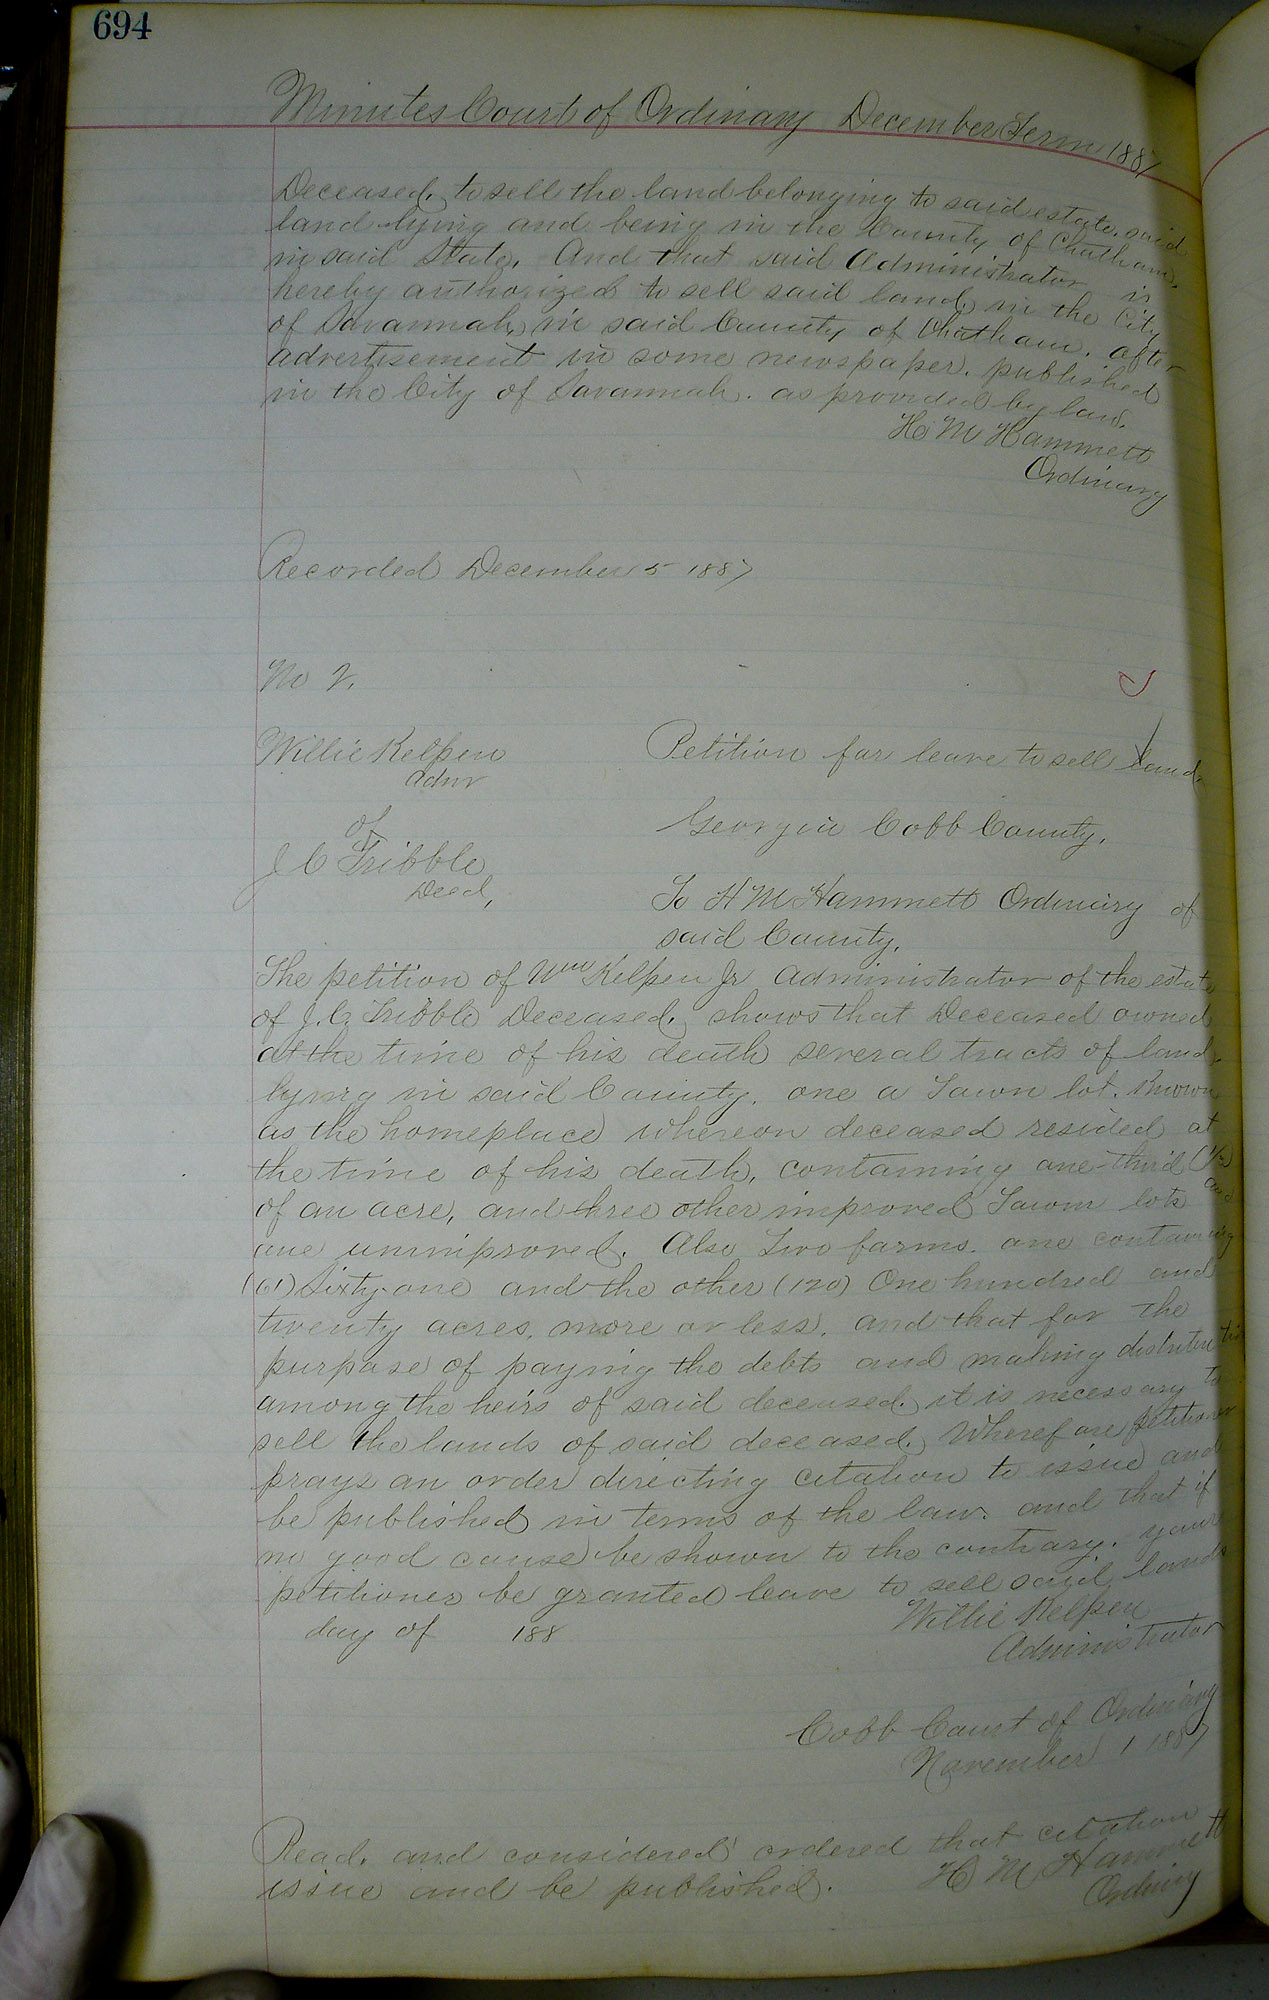 694
Minutes Court of Ordinary December Term 1887
Deceased, to sell the land belonging to said estate, said
land lying and being in the County of Chatham,
in said State, And that said Administrator is
hereby authorized to sell said land, in the City
of Savannah, in said County of Chatham, after
advertisement in some newspaper, published
in the City of Savannah, as provided by law.
H M Hammett
Ordinary
Recorded December 5 1887
No 2.
Willie Kelpen
Admr
of
J C Tribble
Decd,
Petition for leave to sell land.
Georgia Cobb County,
To H M Hammett Ordinary of
said County,
The petition of Wm Kelpen Jr Administrator of the estate
of J. C. Tribble Deceased, shows that Deceased owned
at the time of his death several tracts of land,
lying in said County, one a Town lot, Known
as the homeplace whereon deceased resided at
the time of his death, containing one-third (1/3)
of an acre, and three other improved Town lots and
one unimproved. Also Two farms, one containing
(61) Sixty-one and the other (120) One hundred and
twenty acres, more or less, and that for the
purpose of paying the debts and making distribution
among the heirs of said deceased, it is necessary to
sell the lands of said deceased, Wherefore petitioner
prays an order directing citation to issue and
be published in terms of the law, and that if
no good cause be shown to the contrary, your
petitioner be granted leave to sell said lands
day of 188
Willie Kelpen
Administrator
Cobb Court of Ordinary
November 1 1887
Read, and considered ordered that citation
issue and be published.
H M Hammett
Ordinary